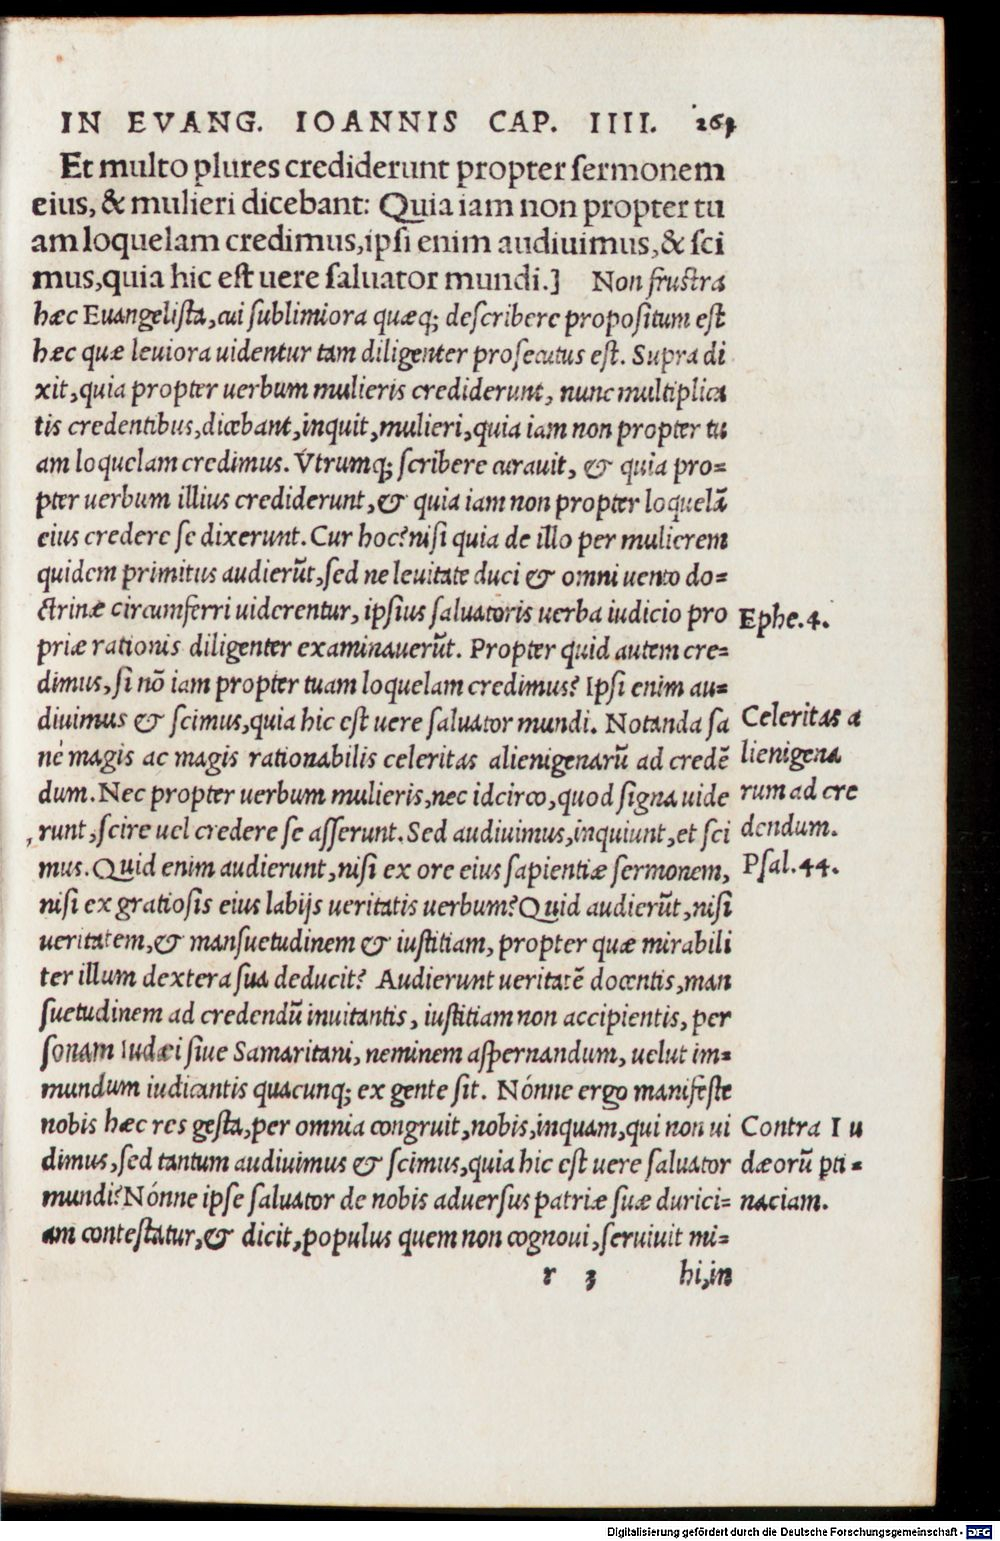 IN EVANG. IOANNIS CAP. IIII.
Et multo plures crediderunt propter sermonem
eius, & mulieri dicebant: Quia iam non propter tu
am loquelam credimus, ipsi enim audiuimus, & sci
mus, quia hic est uere saluator mundi.] Non frustra
hæc Euangelista, cui sublimiora quæq; describere propositum est
hæc quæ leuiora uidentur tam diligenter prosecutus est. Supra di
xit, quia propter uerbum mulieris crediderunt, nunc multiplica
tis credentibus, dicebant, inquit, mulieri, quia iam non propter tu
am loquelam credimus. Vtrumq; scribere curauit, & quia pro=
pter uerbum illius crediderunt, & quia iam non propter loquelā
eius credere se dixerunt. Cur hoc? nisi quia de illo per mulierem
quidem primitus audierūt, sed ne leuitate duci & omni uento do=
ctrinæ circumferri uiderentur, ipsius saluatoris uerba iudicio pro
Ephe. 4.
priæ rationis diligenter examinauerūt. Propter quid autem cre=
dimus, si nō iam propter tuam loquelam credimus? Ipsi enim au=
diuimus & scimus, quia hic est uere saluator mundi. Notanda sa
Celeritas a
nè magis ac magis rationabilis celeritas alienigenarū ad credē
lienigena
dum. Nec propter uerbum mulieris, nec idcirco, quod signa uide
rum ad cre
runt, scire uel credere se asserunt. Sed audiuimus, inquiunt, et sci
dendum.
mus. Quid enim audierunt, nisi ex ore eius sapientiæ sermonem,
Psal. 44.
nisi ex gratiosis eius labijs ueritatis uerbum? Quid audierūt, nisi
ueritatem, & mansuetudinem & iustitiam, propter quæ mirabili
ter illum dextera sua deducit? Audierunt ueritatē docentis, man
suetudinem ad credendū inuitantis, iustitiam non accipientis, per
sonam Iudæi siue Samaritani, neminem aspernandum, uelut im=
mundum iudicantis quacunq; ex gente sit. Nónne ergo manifeste
nobis hæc res gesta, per omnia congruit, nobis, inquam, qui non ui
Contra Iu
dimus, sed tantum audiuimus & scimus, quia hic est uere saluator
dæorū pti=
mundi? Nónne ipse saluator de nobis aduersus patriæ suæ durici=
naciam.
am contestatur, & dicit, populus quem non cognoui, seruiuit mi=
r 3 hi, in
Digitalisierung gefördert durch die Deutsche Forschungsgemeinschaft - DFG